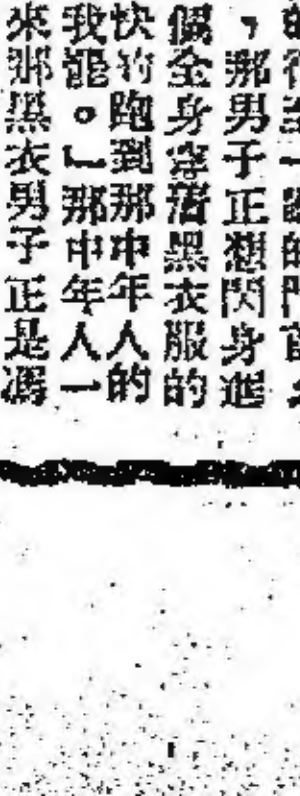 ，那男子正想閃身進
個全身穿著黑衣服的
快的跑到那中年人的
我罷。」那中年人一
來那黑衣男子正是馮